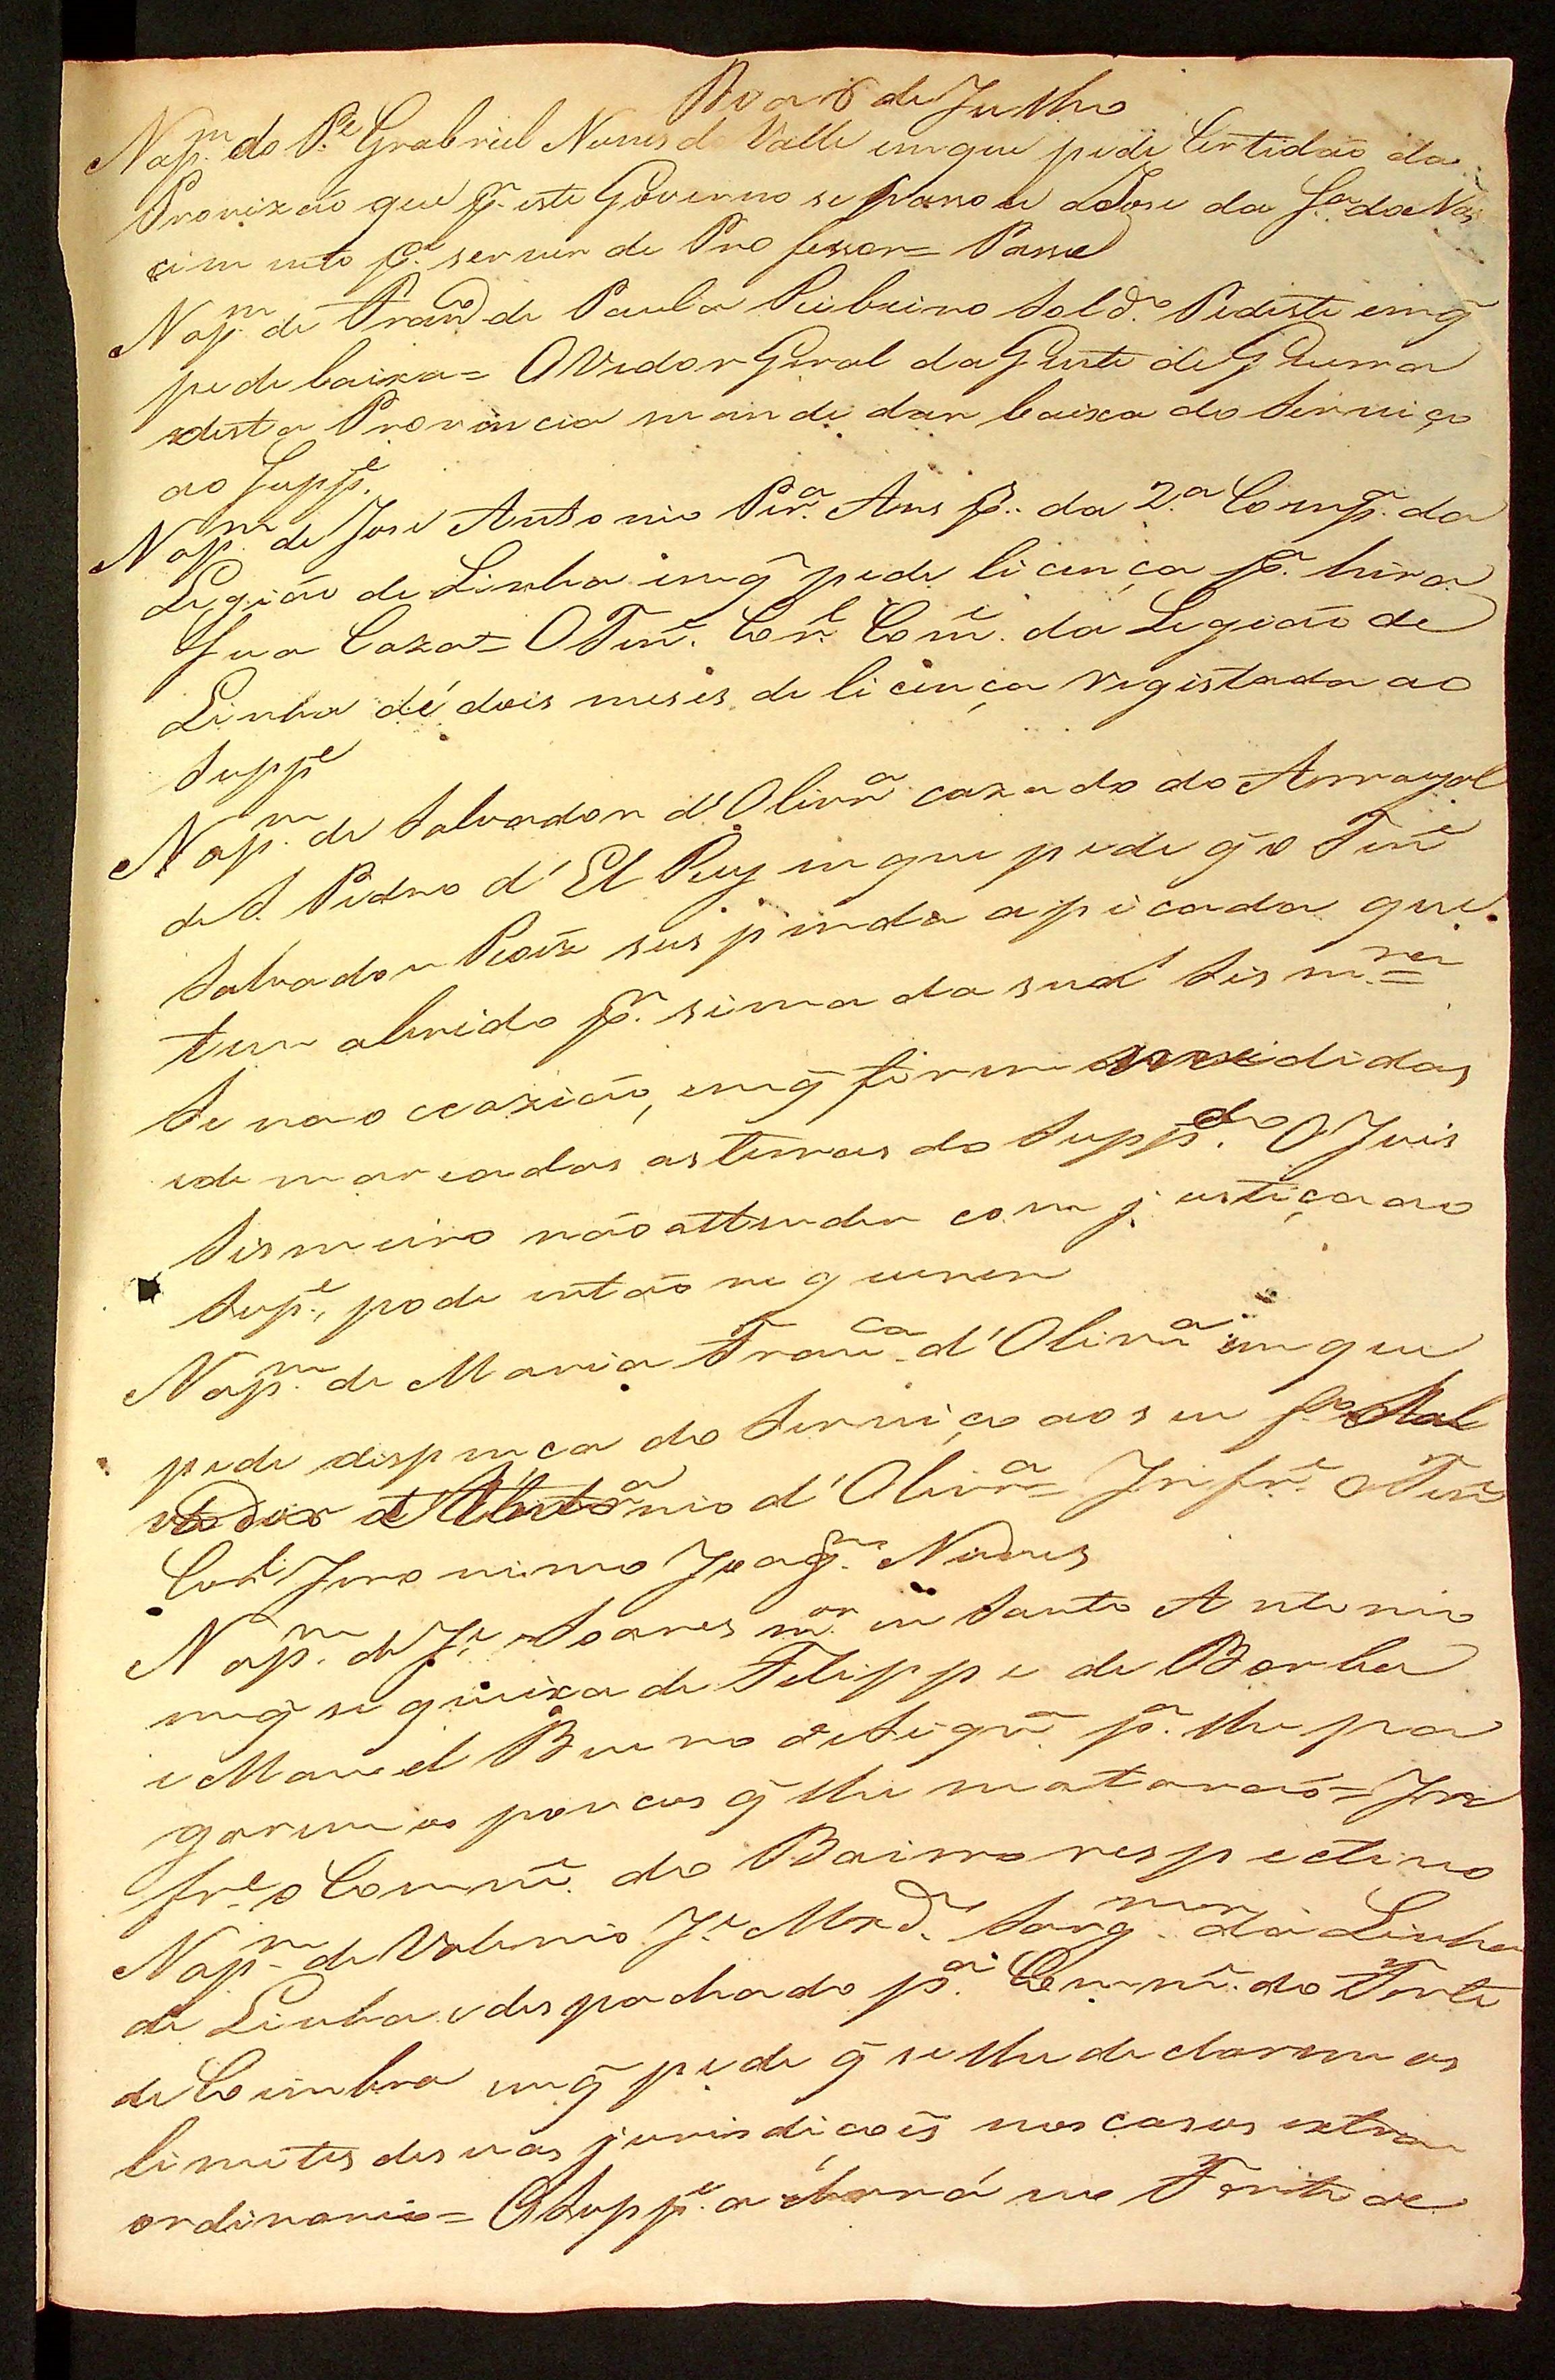 de Julho
Na p.m do P.e Grabriel Nunes do Valle em que pede Certidão da
Provizão que p.r este Governo se passou a Jose da S.a do Nas
cim ento p.a server de Professor = Passe
Na p.m de Fran.co de Paula Ribeiro Sold.o Pedeste em q̃
pede baixa = O Vedor Geral da Gente de Guerra
desta Provincia mande dar baixa do Serviço
ao Supp.e
Na p.m de Jose Antonio Per.a Ans p.a da 2.a Comp.a da
Legião de Linha em q̃ pede licença p.a hir a
Sua Caza = O Ten.e Cor.l Com.e da Legião de
Linha dé dois meses de licença registada ao
Supp.e
Na p.m de Salvador d'Olivr.a cazado do Arrayal
de S. Pedro d'El Rey em que pede q̃ o Ten.e
Salvador Roiz suspenda a picada que
tem abrido p.r sima da sua Sesm.ra =
Se na occazião, em q̃ forem medidas
e demarcadas as terras do Supp.do O Juis
Sismeiro não attender com justiça ao
Sup.e, pode então requerer
Na p.m de Maria Fran.ca d'Olivr.a em que
pede dispenca do Serviço ao seu f.o Sal
vador Antonio d'Olivr.a = Infr.e o Ten.e
Cor.l Jeronimo Joaq.m Nunes
Na p.m de J.e Soares m.or em Santo Antonio
em q̃ se queixa de Felippe de Borba
e Manoel Bueno de Siqr.a p.a lhe pa
garem os porcos q̃ lhe matarão = In
fr.e o Comm.e do Bairro respectivo
Na p.m de Valerio J.e Sarg.to mor da Linha
de Linha e despachado p.a Comm.e do Forte
de Coimbra em q̃ pede q̃ se lhe declarem os
limites de suas jurisdições nos casos extra
ordinarios = O Supp.e achará no Forte de